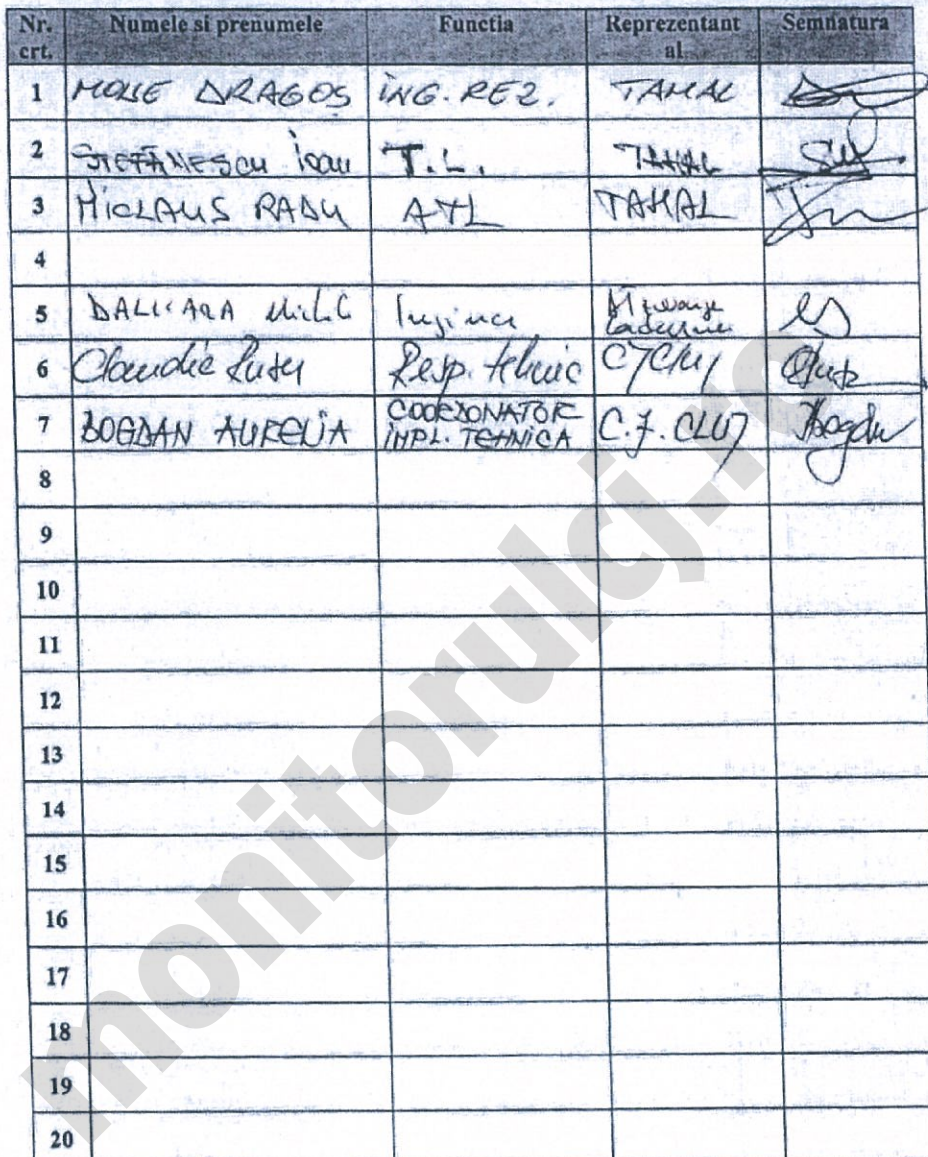 Nr. crt. Numele si prenumele Functia Reprezentant al Semnatura
1 MOLIE DRAGOȘ ING. REZ. TAHAL
2 STEFĂNESCU Ioan T.L. TAHAL
3 MICLAUS RADU ATL TAHAL
4
5 DALICARA Inginer
6 Claudia Rusu Resp. tehnic CJCluj
7 BOGDAN AURELIA COORDONATOR IMPL. TEHNICA C.J. CLUJ Bogdan
8
9
10
11
12
13
14
15
16
17
18
19
20
monitorulcj.ro